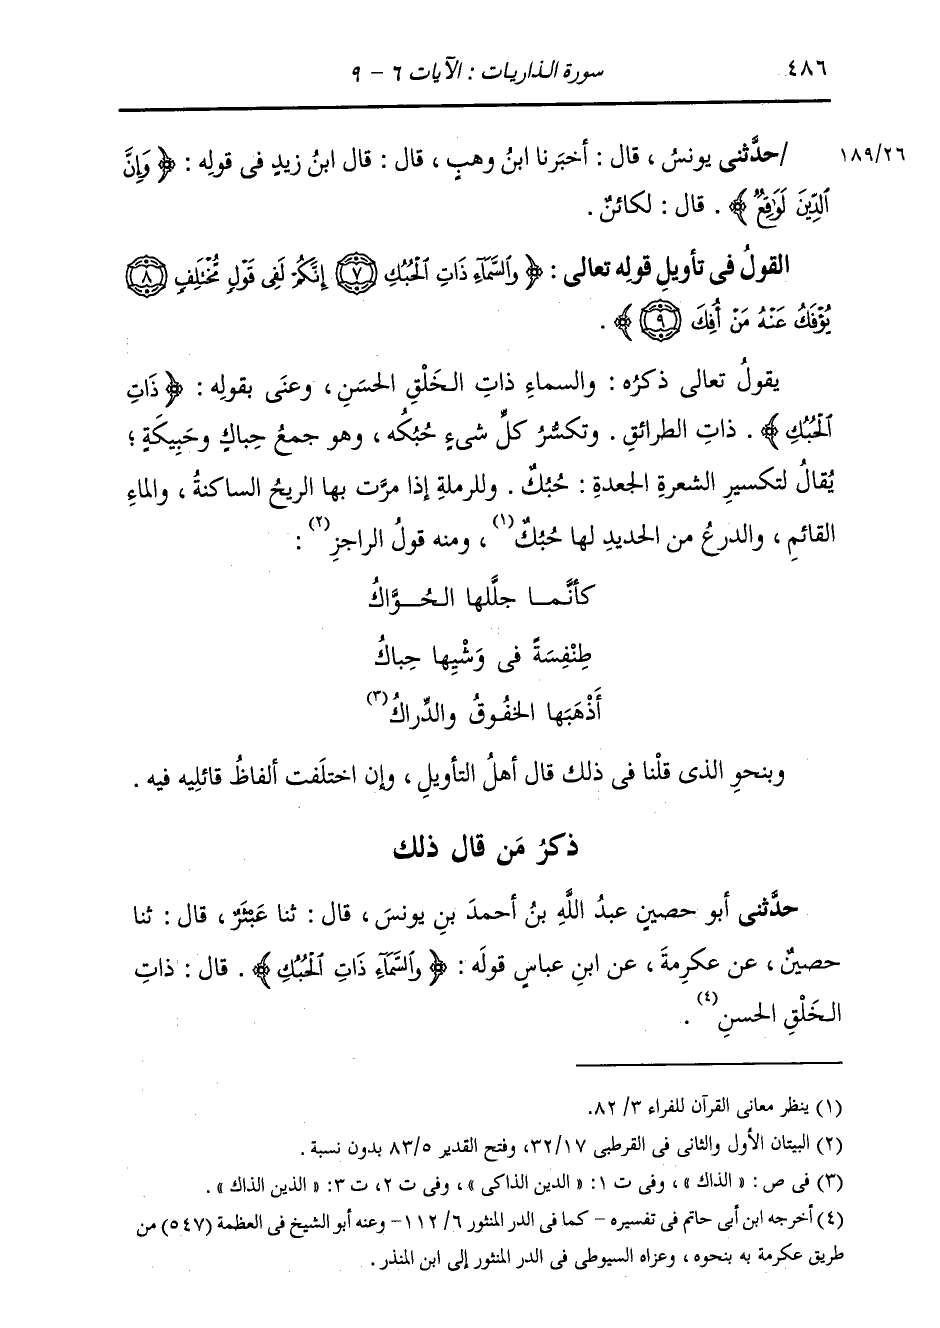 ٤٨٦ سورة الذاريات : الآيات ٦ - ٩
١٨٩/٢٦ /حدَّثنى يونسُ ، قال : أخبَرنا ابنُ وهبٍ ، قال : قال ابنُ زيدٍ فى قولِه : ﴿ وَإِنَّ
ٱلدِّينَ لَوَٰقِعٌ ﴾ . قال : لكائنٌ .
القولُ فى تأويلِ قولِه تعالى : ﴿ وَٱلسَّمَآءِ ذَاتِ ٱلْحُبُكِ ٧ إِنَّكُمْ لَفِى قَوْلٍ مُّخْتَلِفٍ ٨
يُؤْفَكُ عَنْهُ مَنْ أُفِكَ ٩ ﴾ .
يقولُ تعالى ذكرُه : والسماءِ ذاتِ الخَلْقِ الحسَنِ ، وعنَى بقولِه : ﴿ ذَاتِ
ٱلْحُبُكِ ﴾ . ذاتِ الطرائقِ . وتكسُّرُ كلِّ شىءٍ حُبُكُه ، وهو جمعُ حِباكٍ وحَبِيكَةٍ ؛
يُقالُ لتكسيرِ الشعرةِ الجعدةِ : حُبُكٌ . وللرملةِ إذا مرَّت بها الريحُ الساكنةُ ، والماءِ
القائمِ ، والدرعُ من الحديدِ لها حُبُكٌ(١) ، ومنه قولُ الراجزِ(٢) :
كأنَّمــا جلَّلها الحُــوَّاكُ
طِنْفِسَةً فى وَشْيِها حِباكُ
أَذْهَبَها الخفُوقُ والدِّراكُ(٣)
وبنحوِ الذى قلْنا فى ذلك قال أهلُ التأويلِ ، وإن اختلَفت ألفاظُ قائلِيه فيه .
ذكرُ مَن قال ذلك
حدَّثنى أبو حصينٍ عبدُ اللَّهِ بنُ أحمدَ بنِ يونسَ ، قال : ثنا عَبْثَرٌ ، قال : ثنا
حصينٌ ، عن عكرِمةَ ، عن ابنِ عباسٍ قولَه : ﴿ وَٱلسَّمَآءِ ذَاتِ ٱلْحُبُكِ ﴾ . قال : ذاتِ
الخَلْقِ الحسنِ(٤) .
(١) ينظر معانى القرآن للفراء ٣/ ٨٢.
(٢) البيتان الأول والثانى فى القرطبى ٣٢/١٧، وفتح القدير ٨٣/٥ بدون نسبة .
(٣) فى ص : « الذاك » ، وفى ت ١: « الدين الذاكى » ، وفى ت ٢، ت ٣: « الذين الذاك » .
(٤) أخرجه ابن أبى حاتم فى تفسيره - كما فى الدر المنثور ٦/ ١١٢- وعنه أبو الشيخ فى العظمة (٥٤٧) من
طريق عكرمة به بنحوه ، وعزاه السيوطى فى الدر المنثور إلى ابن المنذر .